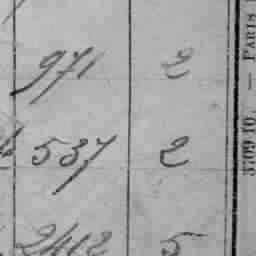 971 2
537 2
2412 5
3709 10. — PARIS